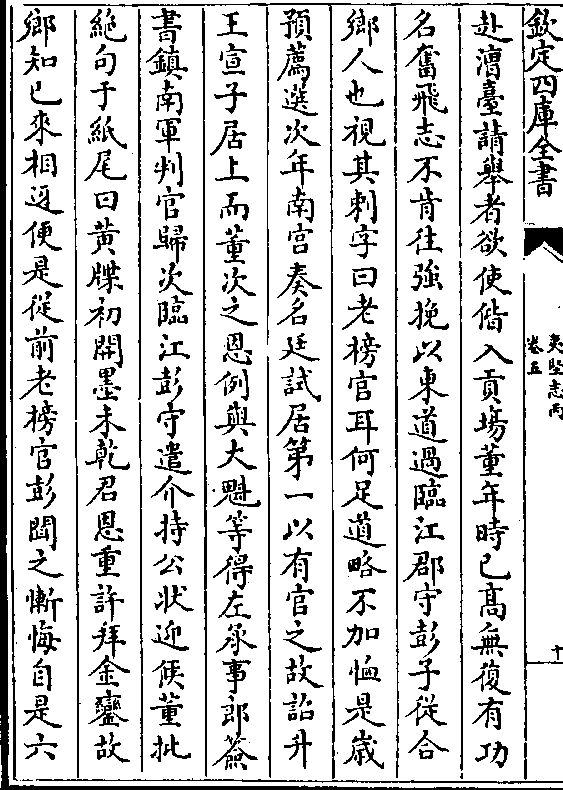 欽定四庫全書
夷堅志丙
卷五
十
赴漕臺請舉者欲使偕入貢塲董年時已髙無復有功
名奮飛志不肯往強挽以東道過臨江郡守彭子從合
鄉人也視其刺字曰老榜官耳何足道略不加恤是歳
預薦選次年南宫奏名廷試居第一以有官之故詔升
王宣子居上而董次之恩例與大魁等得左丞事郎簽
書鎮南軍判官歸次臨江彭守遣介持公狀迎候董批
絶句于紙尾曰黄牒初開墨未乾君恩重許拜金鑾故
鄉知已來相迓便是從前老榜官彭聞之慚悔自是六